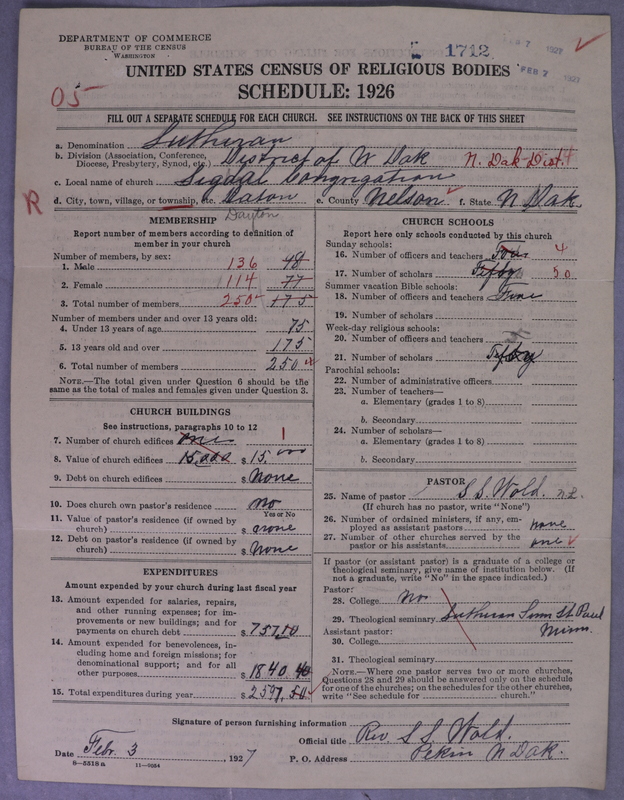 DEPARTMENT OF COMMERCE
BUREAU OF THE CENSUS
WASHINGTON
1712
FEB 7 1927
FEB 7 1927
UNITED STATES CENSUS OF RELIGIOUS BODIES
SCHEDULE: 1926
05
FILL OUT A SEPARATE SCHEDULE FOR EACH CHURCH. SEE INSTRUCTIONS ON THE BACK OF THIS SHEET
a. Denomination Lutheran
b. Division (Association, Conference, Diocese, Presbytery, Synod, etc.) District of N Dak N. Dak-Dist.
c. Local name of church Sigdal Congrigation
R
d. City, town, village, or township, etc. Daton e. County Nelson f. State N Dak.
Dayton
MEMBERSHIP
Report number of members according to definition of
member in your church
Number of members, by sex:
1. Male 136 48
2. Female 114 77
3. Total number of members 250 175
Number of members under and over 13 years old:
4. Under 13 years of age 75
5. 13 years old and over 175
6. Total number of members 250
NOTE.—The total given under Question 6 should be the
same as the total of males and females given under Question 3.
CHURCH BUILDINGS
See instructions, paragraphs 10 to 12
7. Number of church edifices one 1
8. Value of church edifices 15,000 $ 15,000
9. Debt on church edifices $ None
10. Does church own pastor's residence no
Yes or No
11. Value of pastor's residence (if owned by
church) $ none
12. Debt on pastor's residence (if owned by
church) $ None
EXPENDITURES
Amount expended by your church during last fiscal year
13. Amount expended for salaries, repairs,
and other running expenses; for im-
provements or new buildings; and for
payments on church debt $ 757.50
14. Amount expended for benevolences, in-
cluding home and foreign missions; for
denominational support; and for all
other purposes $ 1840.40
15. Total expenditures during year $ 2597.50
CHURCH SCHOOLS
Report here only schools conducted by this church
Sunday schools:
16. Number of officers and teachers Four 4
17. Number of scholars Fifty 50
Summer vacation Bible schools:
18. Number of officers and teachers
19. Number of scholars
Week-day religious schools:
20. Number of officers and teachers
21. Number of scholars Fifty
Parochial schools:
22. Number of administrative officers
23. Number of teachers—
a. Elementary (grades 1 to 8)
b. Secondary
24. Number of scholars—
a. Elementary (grades 1 to 8)
b. Secondary
PASTOR
25. Name of pastor S S. Wold. n.L.
(If church has no pastor, write "None")
26. Number of ordained ministers, if any, em-
ployed as assistant pastors none
27. Number of other churches served by the
pastor or his assistants one
If pastor (or assistant pastor) is a graduate of a college or
theological seminary, give name of institution below. (If
not a graduate, write "No" in the space indicated.)
Pastor:
28. College No
29. Theological seminary Lutheran Sem St Paul
Minn.
Assistant pastor:
30. College
31. Theological seminary
NOTE.—Where one pastor serves two or more churches,
Questions 28 and 29 should be answered only on the schedule
for one of the churches; on the schedules for the other churches,
write "See schedule for church."
Signature of person furnishing information
Official title Rev. S S Wold.
Date Febr. 3, 1927 P. O. Address Pekin N Dak.
8—5518 a 11—9054